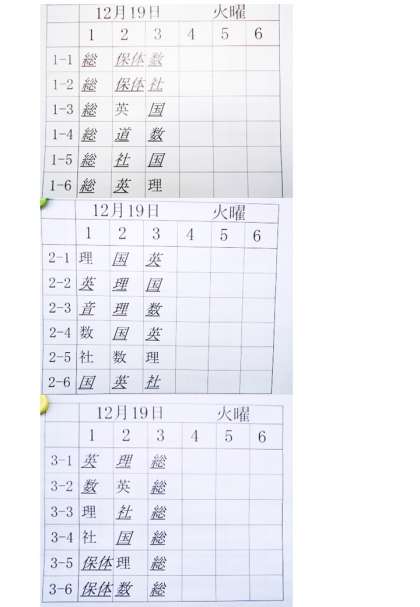 12月19日 火曜
1 2 3 4 5 6
1-1 総 保体 数
1-2 総 保体 社
1-3 総 英 国
1-4 総 道 数
1-5 総 社 国
1-6 総 英 理
12月19日 火曜
1 2 3 4 5 6
2-1 理 国 英
2-2 英 理 国
2-3 音 理 数
2-4 数 国 英
2-5 社 数 理
2-6 国 英 社
12月19日 火曜
1 2 3 4 5 6
3-1 英 理 総
3-2 数 英 総
3-3 理 社 総
3-4 社 国 総
3-5 保体 理 総
3-6 保体 数 総